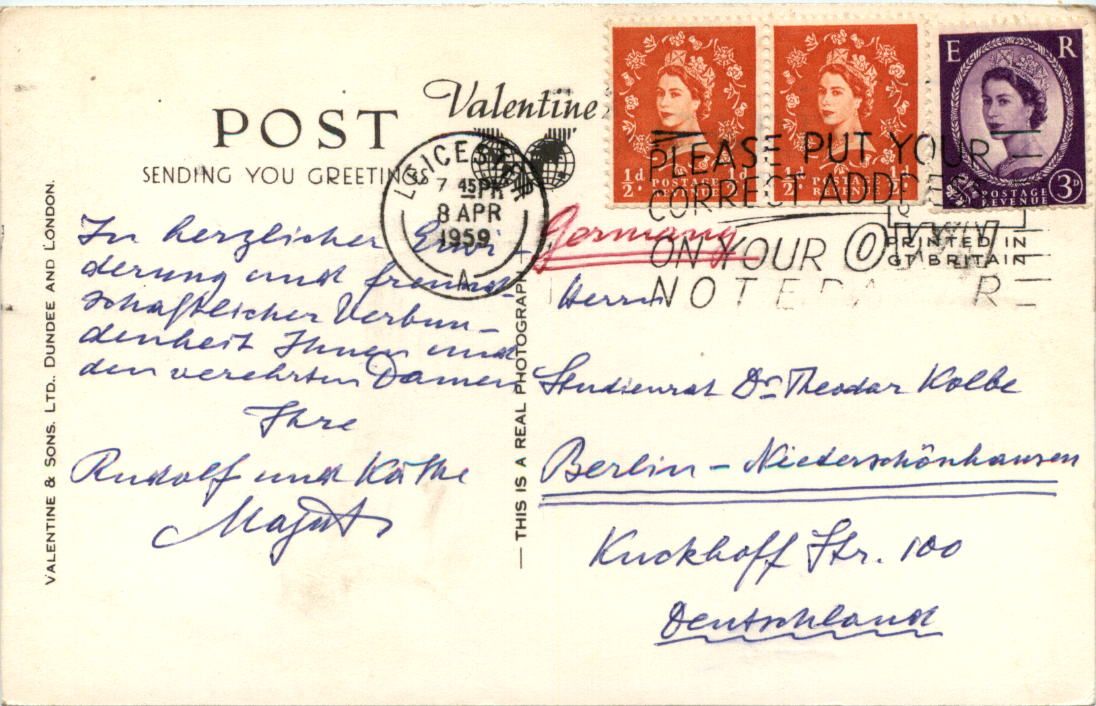 POST
Valentine
SENDING YOU GREETINGS
LEICESTER
7 45 PM
8 APR
1959
A
½d POSTAGE REVENUE ½d
½d POSTAGE REVENUE ½d
E R
POSTAGE REVENUE 3D
PLEASE PUT YOUR
CORRECT ADDRESS
ON YOUR OWN
NOTEPAPER
PRINTED IN
GT BRITAIN
In herzlicher Erin-
derung und freund-
schaftlicher Verbun-
denheit Ihnen und
den verehrten Damen
Ihre
Rudolf und Käthe
Majut
Germany
Herrn
Studienrat Dr. Theodor Kolbe
Berlin - Niederschönhausen
Kuckhoff Str. 100
Deutschland
VALENTINE & SONS. LTD. DUNDEE AND LONDON.
— THIS IS A REAL PHOTOGRAPH